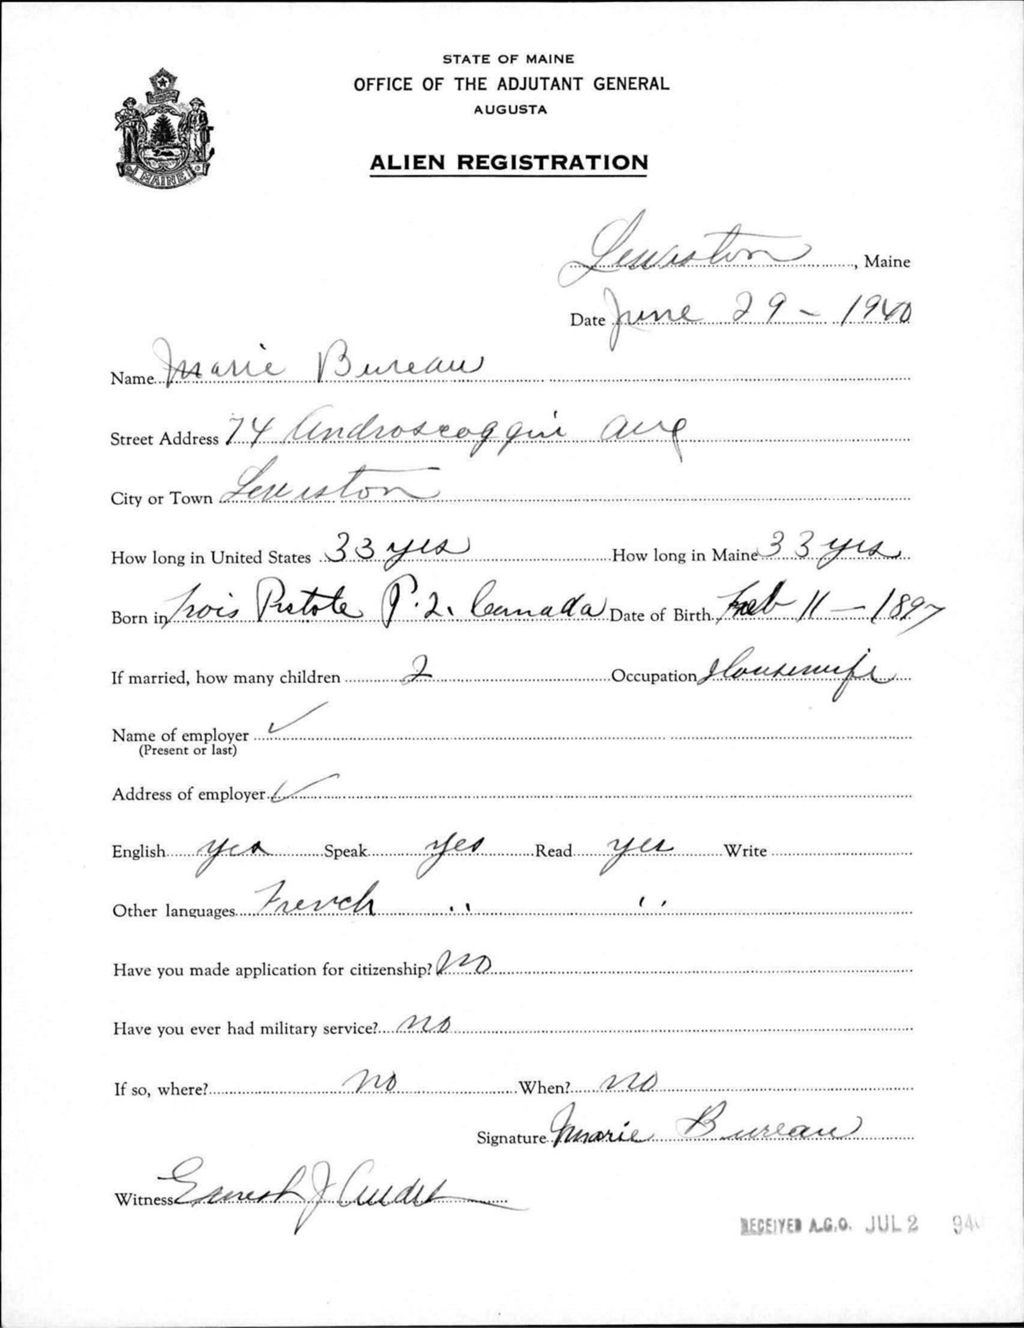 STATE OF MAINE
OFFICE OF THE ADJUTANT GENERAL
AUGUSTA
ALIEN REGISTRATION
MAINE
Lewiston, Maine
Date June 29 - 1940
Name Marie Bureau
Street Address 74 Androscoggin Ave
City or Town Lewiston
How long in United States 33 yrs How long in Maine 33 yrs
Born in Trois Pistole P.Q. Canada Date of Birth Feb 11 - 1897
If married, how many children 2 Occupation Housewife
Name of employer ✓
(Present or last)
Address of employer ✓
English yes Speak yes Read yes Write
Other languages French " "
Have you made application for citizenship? no
Have you ever had military service? no
If so, where? no When? no
Signature Marie Bureau
Witness Ernest J Audet
RECEIVED A.G.O. JUL 2 940